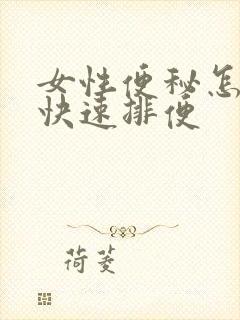 女性便秘怎
快速排便
荷菱